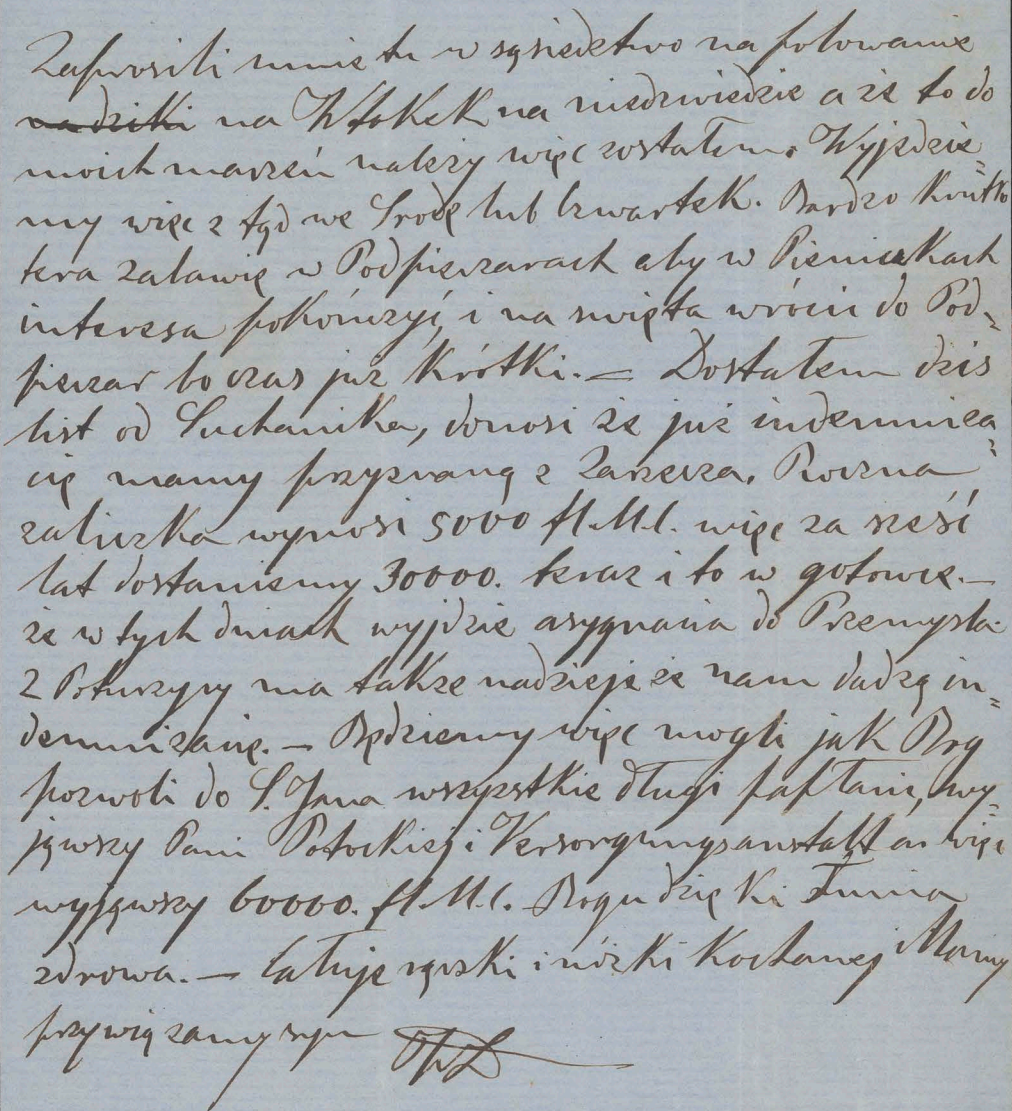 Zaprosili mnie tu w sąsiedztwo na polowanie
na dziki na Wtokek na niedzwiedzie a że to do
moich marzeń należy więc zostałem. Wyjedzie=
my więc z tąd we Srodę lub Czwartek. Bardzo krótko
tera zabawię w Podpieczarach aby w Pieniakach
interesa pokończyć, i na swięta wrócić do Pod=
pieczar bo czas już krótki. — Dostałem dzis
list od Suchanika, donosi że już indemniza=
cię mamy przyznaną z Zarzecza. Roczna
zaliczka wynosi 5000 fl.M.C. więc za sześć
lat dostaniemy 30000. teraz i to w gotowce. —
że w tych dniach wyjdzie asygnacia do Przemysla.
Z Poturzycy ma także nadzieje że nam dadzą in=
demnizacię. — Będziemy więc mogli jak Bog
pozwoli do S. Jana wszystkie długi popłacić, wy=
jąwszy Pani Potockiej i Versorgungsanstalt a więc
wyjąwszy 60000. fl.M.C. Bogu dzięki Tunia
zdrowa. — Całuje rączki i nóżki Kochanej Mamy
przywiązamy syn